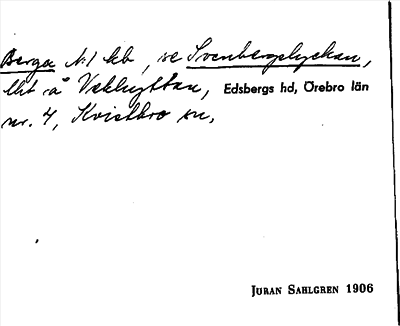 Berga Nr 1 hb, se Svenbergslyckan,
lht å Vekhyttan, Edsbergs hd, Örebro län
nr. 4, Kvistbro sn.
JURAN SAHLGREN 1906